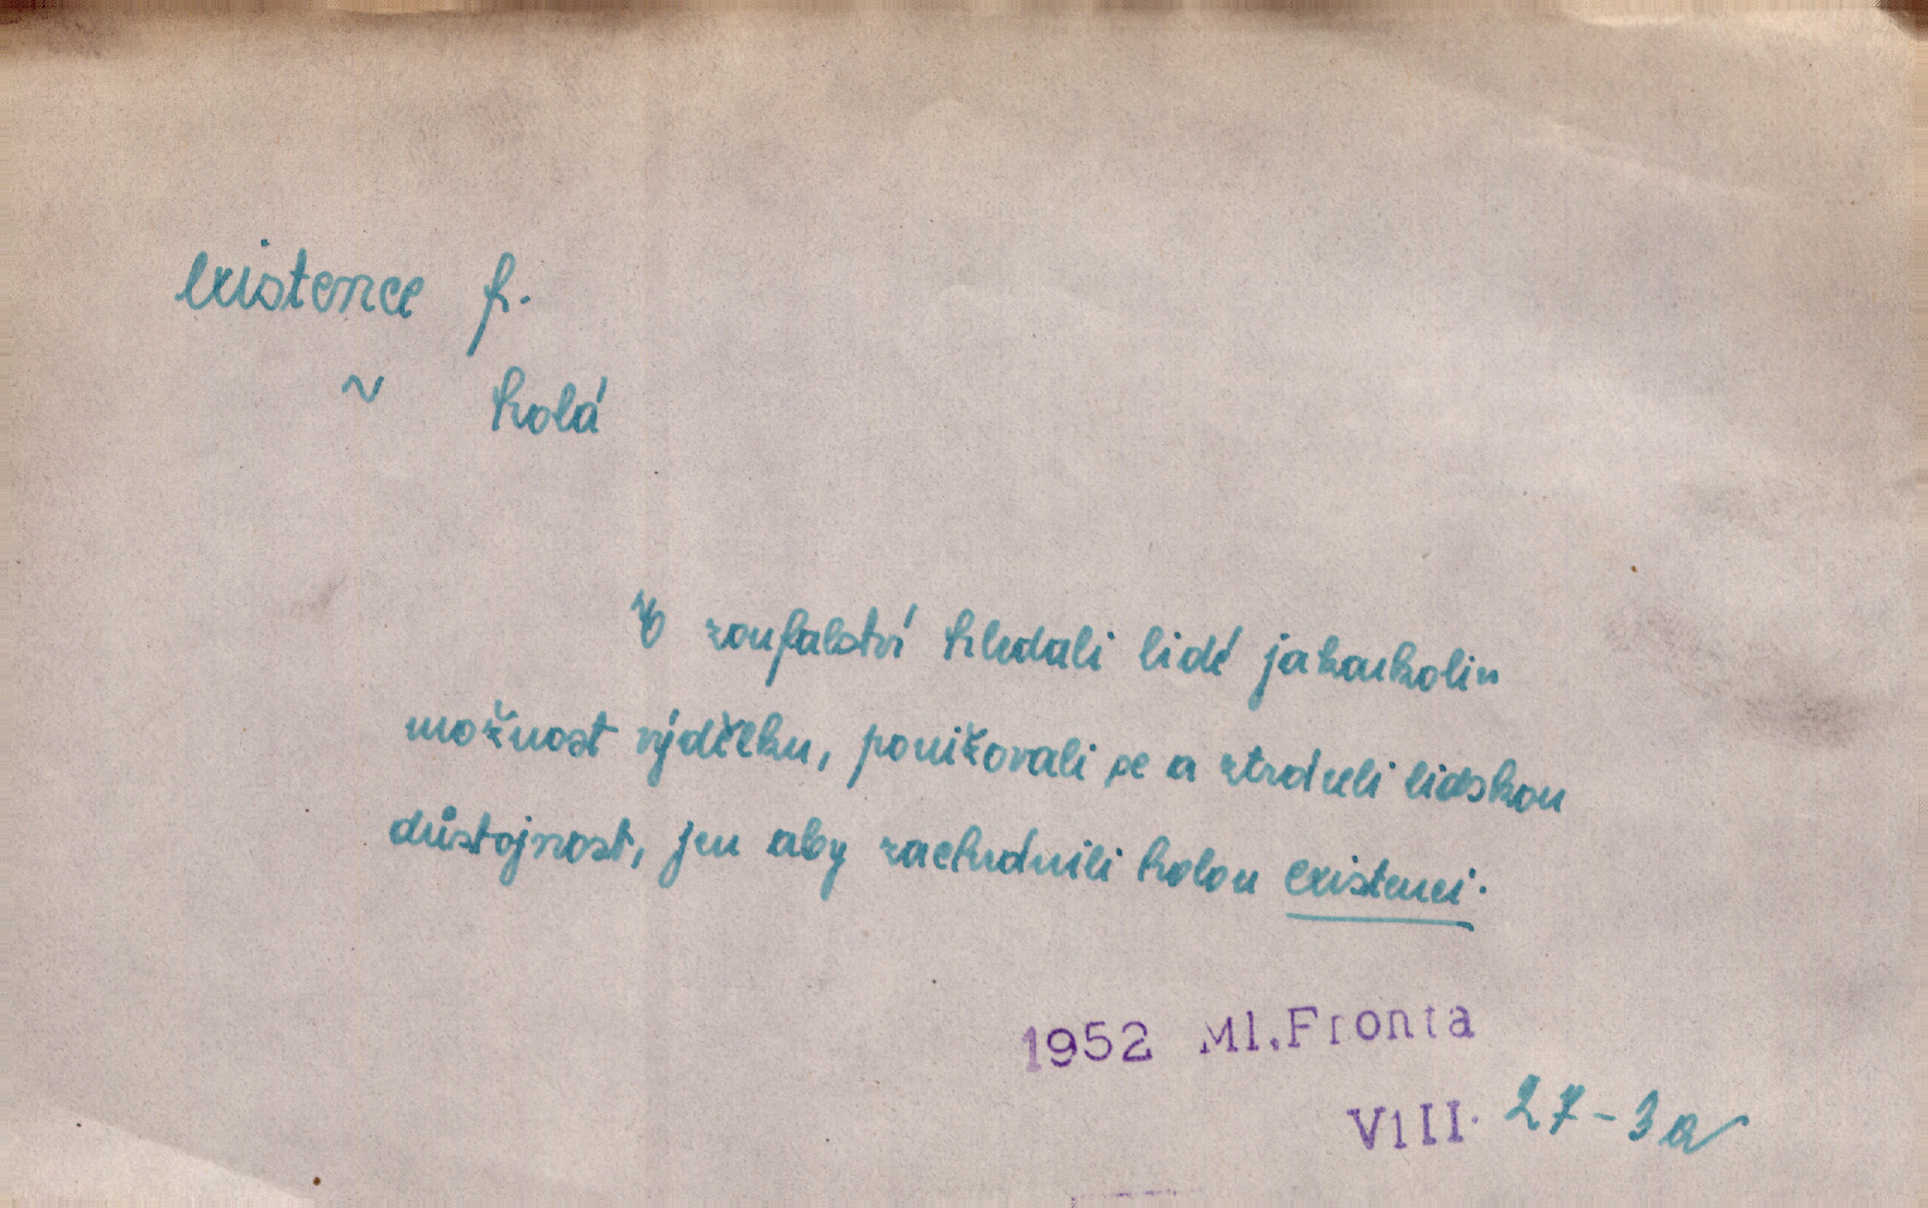 existence f.
~ holá
V zoufalství hledali lidé jakoukoliv
možnost výdělku, ponižovali se a ztráceli lidskou
důstojnost, jen aby zachránili holou existenci.
1952 Ml.Fronta
VIII. 27-3a